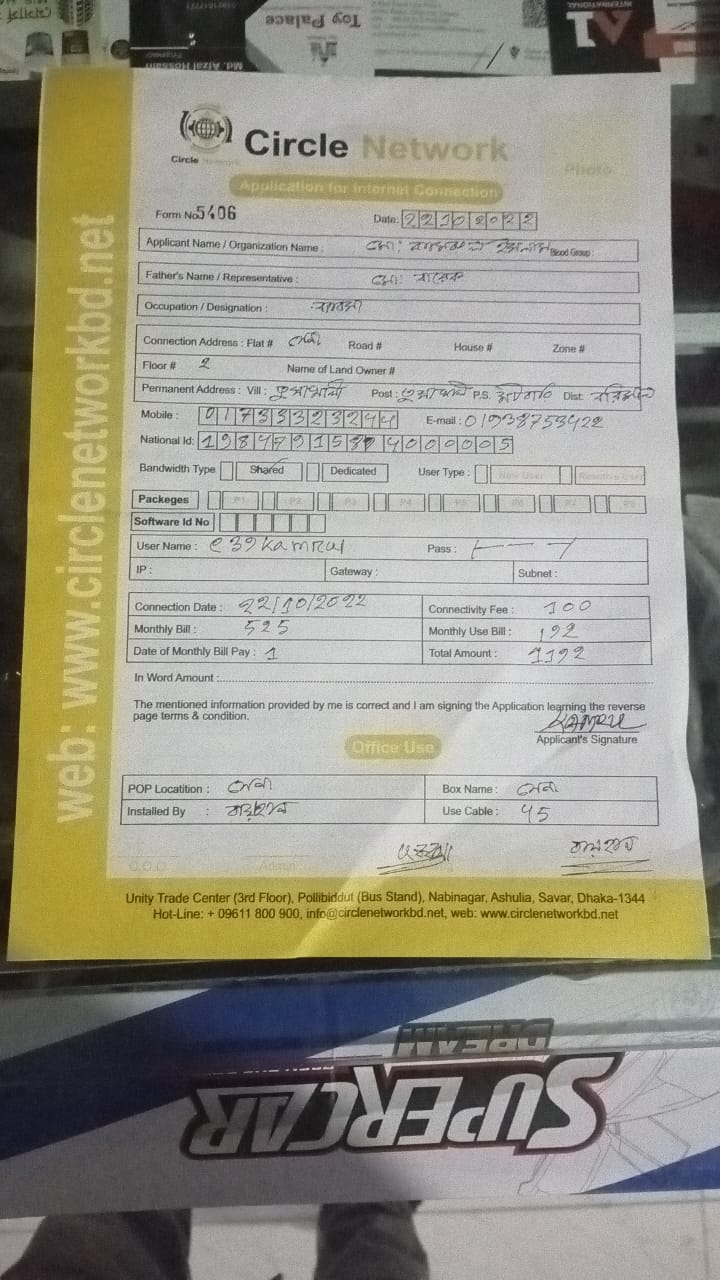 Toy Palace
Md. Afzal Hossain
INTERNATIONAL
Circle Network
Circle Network
Photo
Application for Internet Connection
Form No 5406 Date: 22102022
Applicant Name / Organization Name : মো: কামরুল ইসলাম Blood Group :
Father's Name / Representative : মো: বারেক
Occupation / Designation : ব্যবসা
Connection Address : Flat # Road # House # Zone #
Floor # 2 Name of Land Owner #
Permanent Address : Vill : Post : P.S. Dist: বরিশাল
Mobile : 01733323244 E-mail : 01938753422
National Id: 19847915 400005
Bandwidth Type Shared Dedicated User Type : New User Reactive User
Packeges P1 P2 P3 P4 P5 P6 P7 P8
Software Id No
User Name : e39kamrul Pass :
IP : Gateway : Subnet :
Connection Date : 22/10/2022 Connectivity Fee : 100
Monthly Bill : 525 Monthly Use Bill : 192
Date of Monthly Bill Pay : 1 Total Amount : 1192
In Word Amount :
The mentioned information provided by me is correct and I am signing the Application learning the reverse
page terms & condition.
KAMRU
Applicant's Signature
Office Use
POP Locatition : Box Name :
Installed By : Use Cable : 45
C.O.O Admin
Unity Trade Center (3rd Floor), Pollibiddut (Bus Stand), Nabinagar, Ashulia, Savar, Dhaka-1344
Hot-Line: + 09611 800 900, info@circlenetworkbd.net, web: www.circlenetworkbd.net
web: www.circlenetworkbd.net
DREAM
SUPERCAR